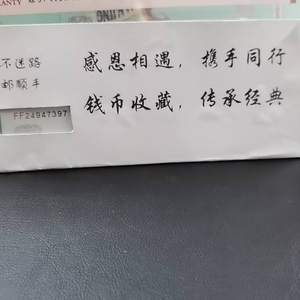 RANTY
不迷路
邮顺手
FF24947397
感恩相遇，携手同行
钱币收藏，传承经典